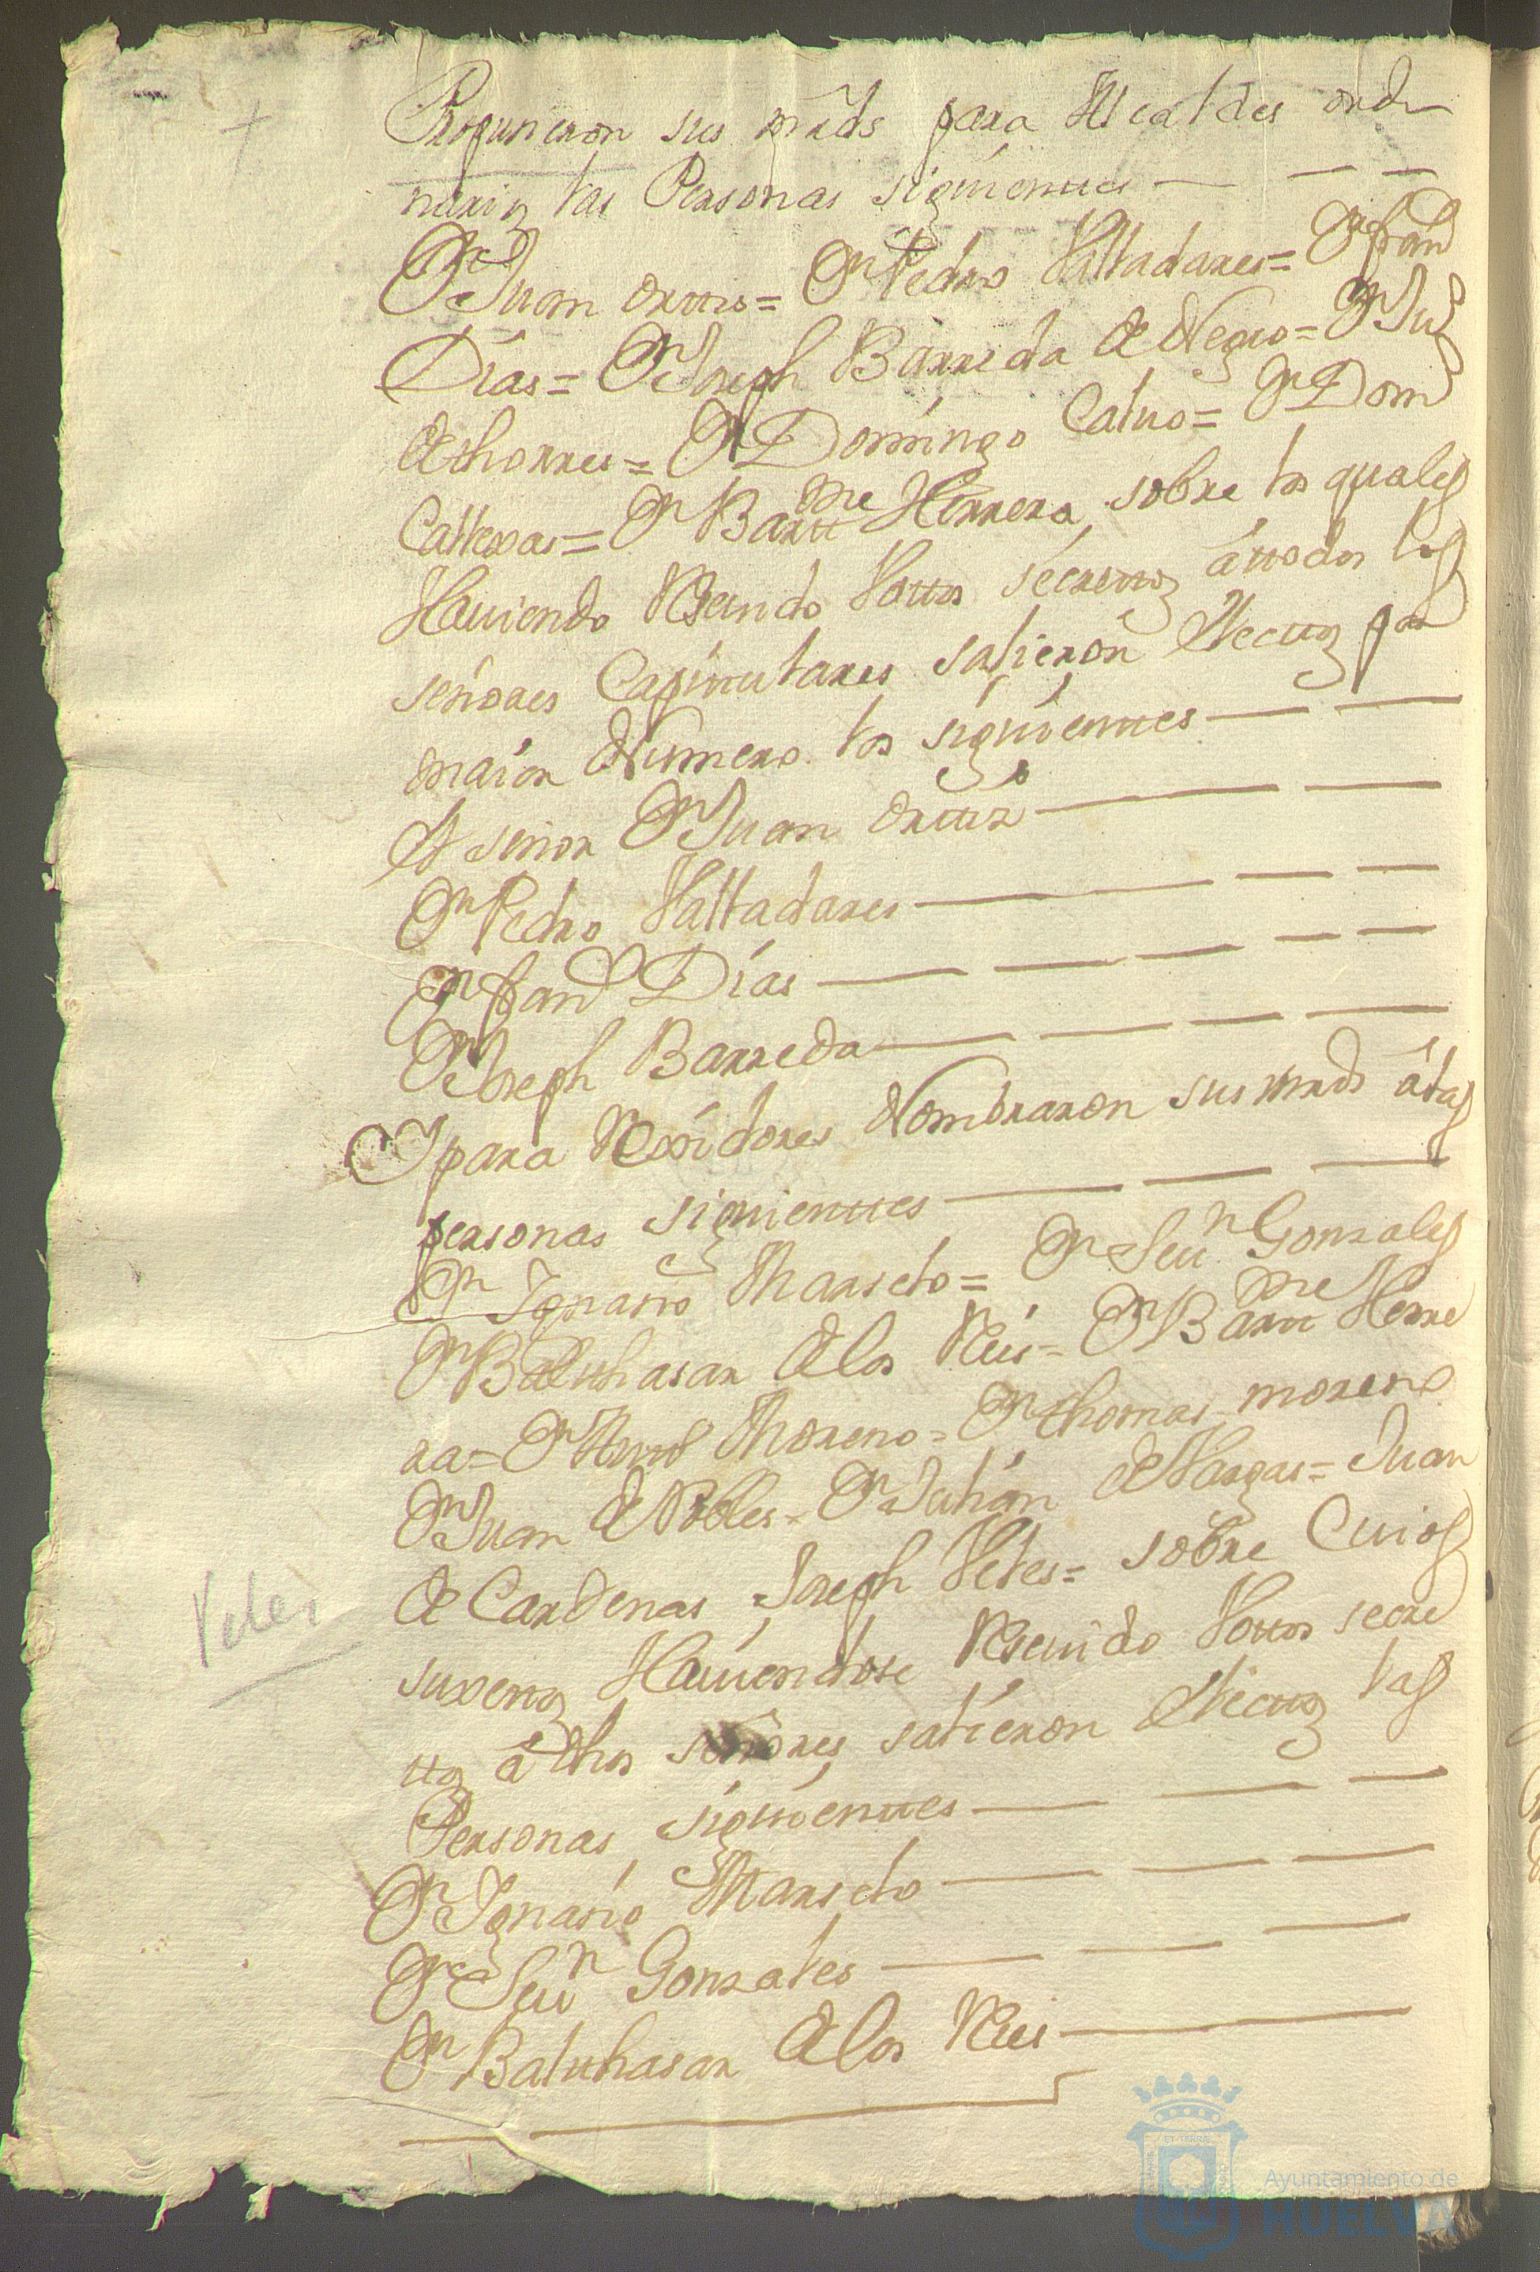 Propusieron sus mrds para Alcaldes ordi
narios las Personas siguienttes
Dn Juan Orttis= Dn Pedro Valladares= Dn Fran.co
Dias= Dn Joseph Barreda de Negro= Dn Ju.o
de thorres= Dn Domingo Calvo= Dn Dom
Callexas= Dn Bartt.me Herrera, sobre los quales
Haviendo Resevido Vottos secrettos á ttodos los
señores Capittulares salieron Electtos por
maior Numero los siguienttes
El señor Dn Juan Orttiz
Dn Pedro Valladares
Dn Fran.co Dias
Dn Joseph Barreda
Y para Rexidores Nombraron sus mrds á las
personas siguienttes
Dn Ignasio Marselo= Dn Seu.n Gonzales
Dn Baltthasar de los Reis= Dn Bartt.me Herre
ra= Dn Moreno= Dn thomas moreno
Dn Juan de Robles= Dn Julián de Vargas= Juan
de Cardenas, Joseph Veles= sobre Cuios
suxettos Haviendose Resevido Vottos secre
ttos á dhos señores salieron Electtos las
Personas siguienttes
Dn Ignasio Marselo
Dn Seu.n Gonzales
Dn Baltthasar de los Reis
Veles
ET TERRÆ
Ayuntamiento de
HUELVA